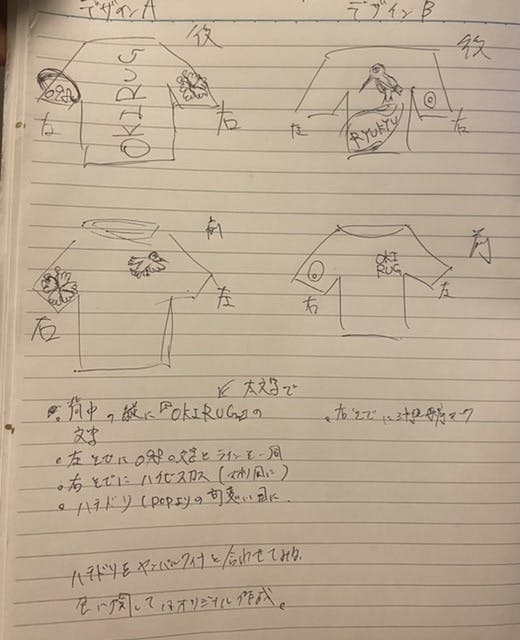 デザインA
デザインB
後
後
OKIRUG
左
右
左
右
RYUKYU
前
前
OKI
RUG
右
左
右
左
太文字で
背中の縦に『OKIRUG』の
文字
右そでに
左そでに の文字とラインを一周
右そでにハイビスカス
ハチドリ
ハチドリをヤンバルクイナと合わせてみる
に関してはオリジナル作成。